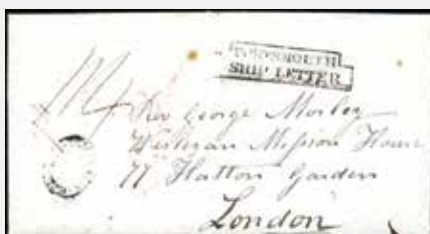 SHIP LETTER
Rev George Morley
Wesleyan Mission House
77 Hatton Garden
London